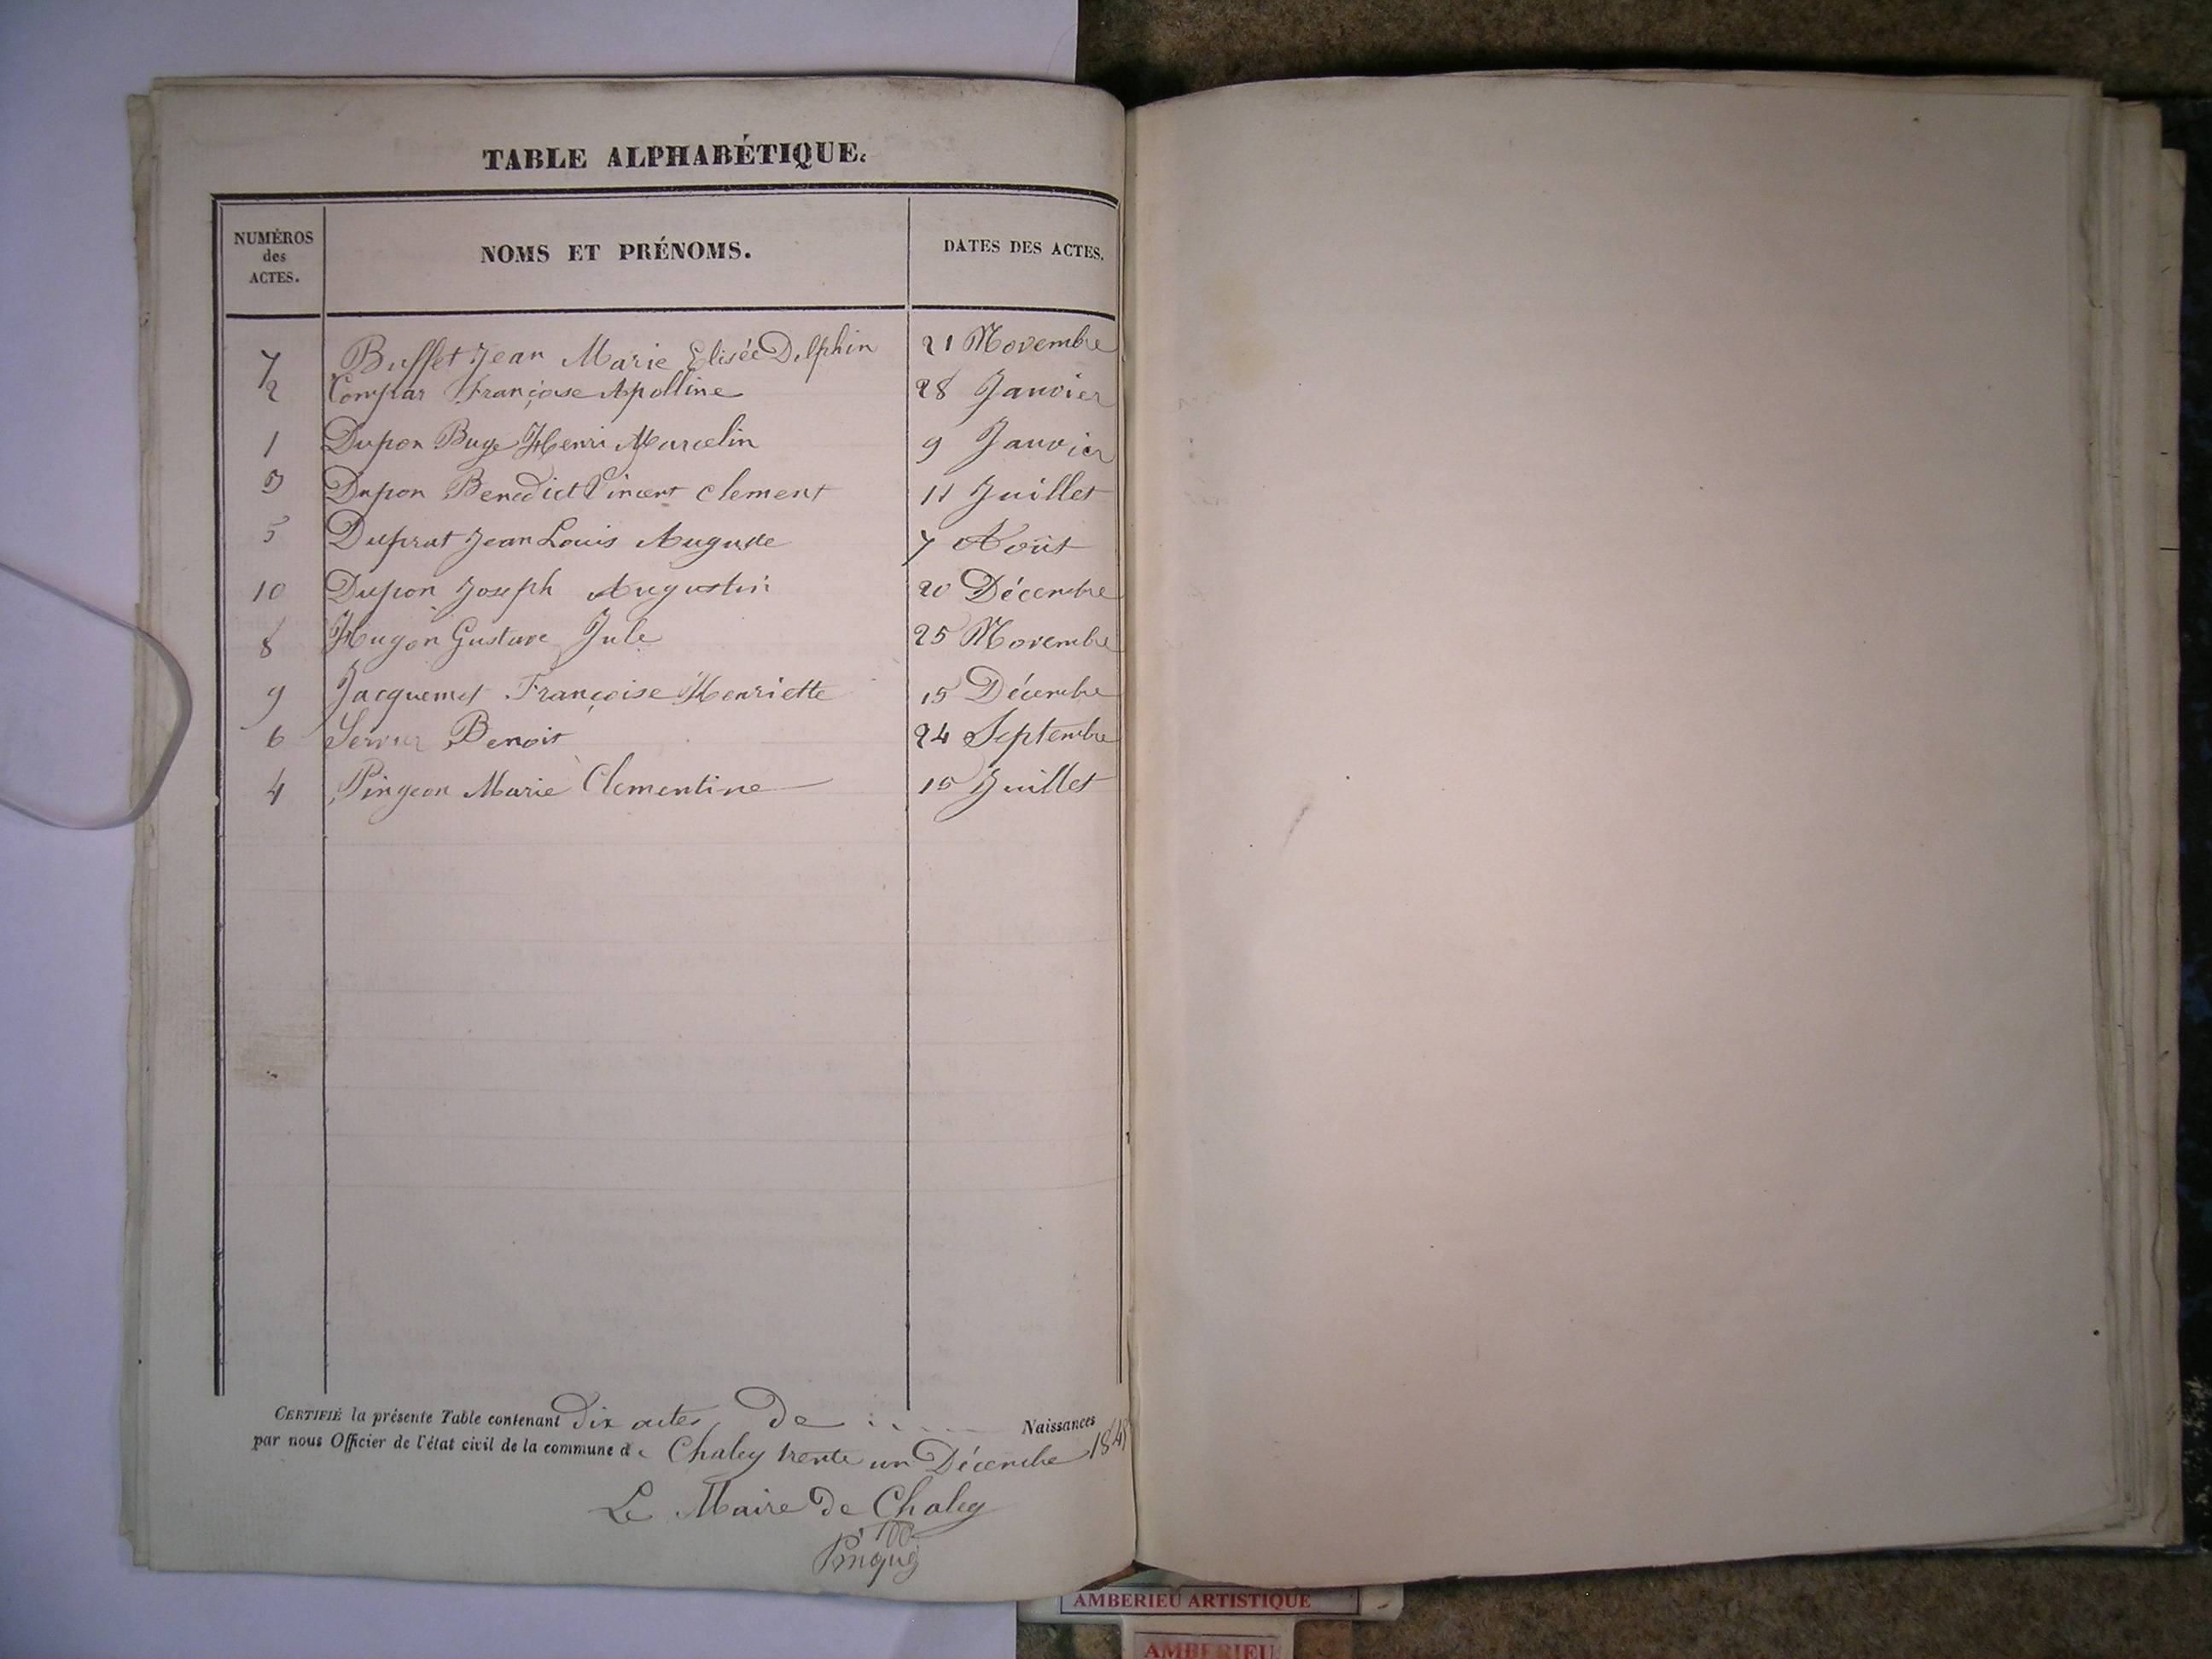 TABLE ALPHABÉTIQUE.
NUMÉROS des ACTES. NOMS ET PRÉNOMS. DATES DES ACTES.
7 Buffet Jean Marie Elisée Delphin 21 Novembre
2 Compar Françoise Apolline 28 Janvier
1 Dupon Buge Henri Marcelin 9 Janvier
3 Dupon Benedict Vincent Clement 11 Juillet
5 Duprat Jean Louis Auguste 7 Août
10 Dupon Joseph Augustin 20 Décembre
8 Hugon Gustave Jule 25 Novembre
9 Jacquemet Françoise Henriette 15 Décembre
6 Benoit 24 Septembre
4 Pingeon Marie Clementine 15 Juillet
CERTIFIÉ la présente Table contenant dix actes de Naissances
par nous Officier de l'état civil de la commune de Chaley trente un Décembre
Le Maire de Chaley
AMBERIEU ARTISTIQUE
AMBERIEU